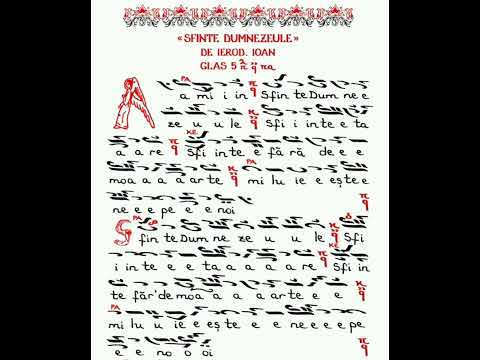 «SFINTE DUMNEZEULE»
DE IEROD. IOAN
GLAS 5
PA
A a mi i in Sfin te Dum ne e
ze u u le Sfi i in te e ta
KE
a a a re Sfi in te e fă ră de e e
PA
moa a a ă ar te mi lu ie e eș te e
ne e e pe e e noi
PA
S fin te Dum ne ze u u le Sfi
i in te e e ta a a a a re Sfi in
te făr' de moa a a ar te e e
PA
mi lu u ie e eș te e e ne e e e pe
e e no o oi